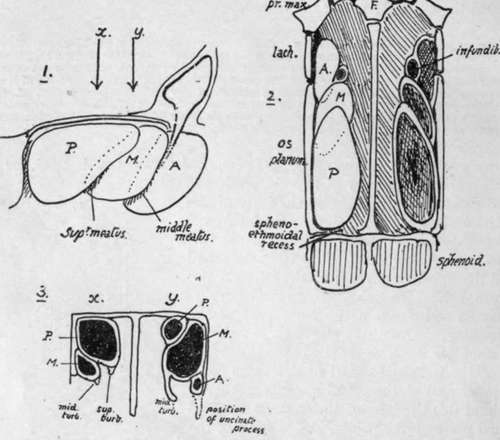 x. y.
1.
P.
M.
A
Supr meatus.
middle
meatus.
pr. max.
F.
lach.
infundib.
A.
M
2.
os
planum.
P
spheno-
ethmoidal
recess
sphenoid.
3.
x. y.
P.
P.
M.
M.
A.
mid.
turb.
sup.
turb.
mid.
turb.
position
of uncinate
process